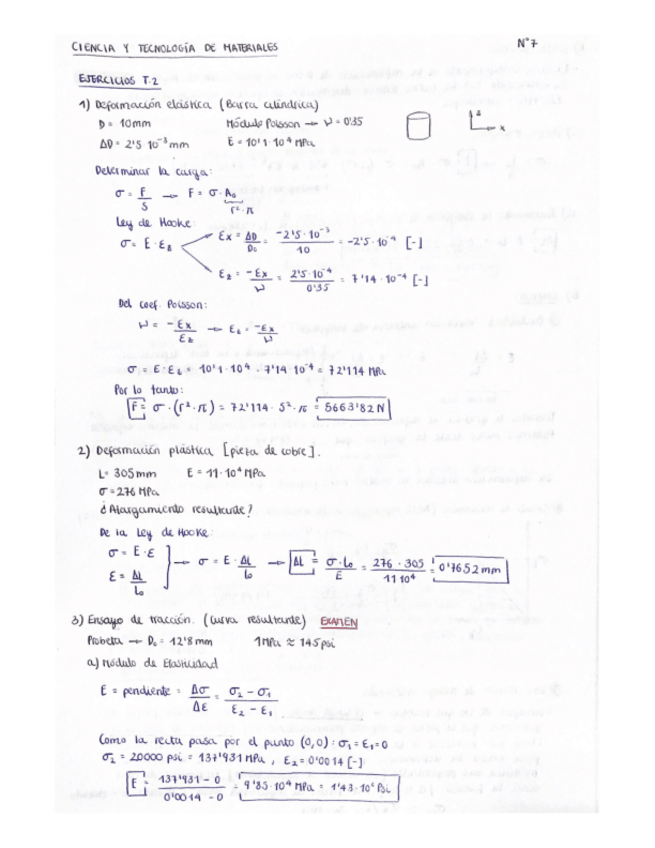 CIENCIA Y TECNOLOGÍA DE MATERIALES Nº7
EJERCICIOS T.2
1) Deformación elástica (Barra cilíndrica)
D = 10mm Módulo Poisson → ν = 0'35
ΔD = 2'5 · 10⁻³ mm E = 10'1 · 10⁴ MPa
z
x
Determinar la carga:
σ = F/S → F = σ · A₀
r² · π
Ley de Hooke:
σ = E · εz
εx = ΔD/D₀ = -2'5 · 10⁻³/10 = -2'5 · 10⁻⁴ [-]
εz = -εx/ν = 2'5 · 10⁻⁴/0'35 = 7'14 · 10⁻⁴ [-]
Del coef. Poisson:
ν = -εx/εz → εz = -εx/ν
σ = E · εz = 10'1 · 10⁴ · 7'14 · 10⁻⁴ = 72'114 MPa
Por lo tanto:
F = σ · (r² · π) = 72'114 · 5² · π = 5663'82 N
2) Deformación plástica [pieza de cobre].
L = 305mm E = 11 · 10⁴ MPa
σ = 276 MPa
¿Alargamiento resultante?
De la Ley de Hooke:
σ = E · ε
ε = ΔL/L₀
→ σ = E · ΔL/L₀ → ΔL = σ · L₀/E = 276 · 305/11 10⁴ = 0'7652 mm
3) Ensayo de tracción. (curva resultante) EXAMEN
Probeta → D₀ = 12'8 mm 1MPa ≈ 145 psi
a) Módulo de Elasticidad
E = pendiente = Δσ/Δε = σ₂ - σ₁/ε₂ - ε₁
Como la recta pasa por el punto (0,0): σ₁ = ε₁ = 0
σ₂ = 20000 psi = 137'931 MPa, ε₂ = 0'0014 [-]
E = 137'931 - 0/0'0014 - 0 = 9'85 · 10⁴ MPa = 1'43 · 10⁶ Psi